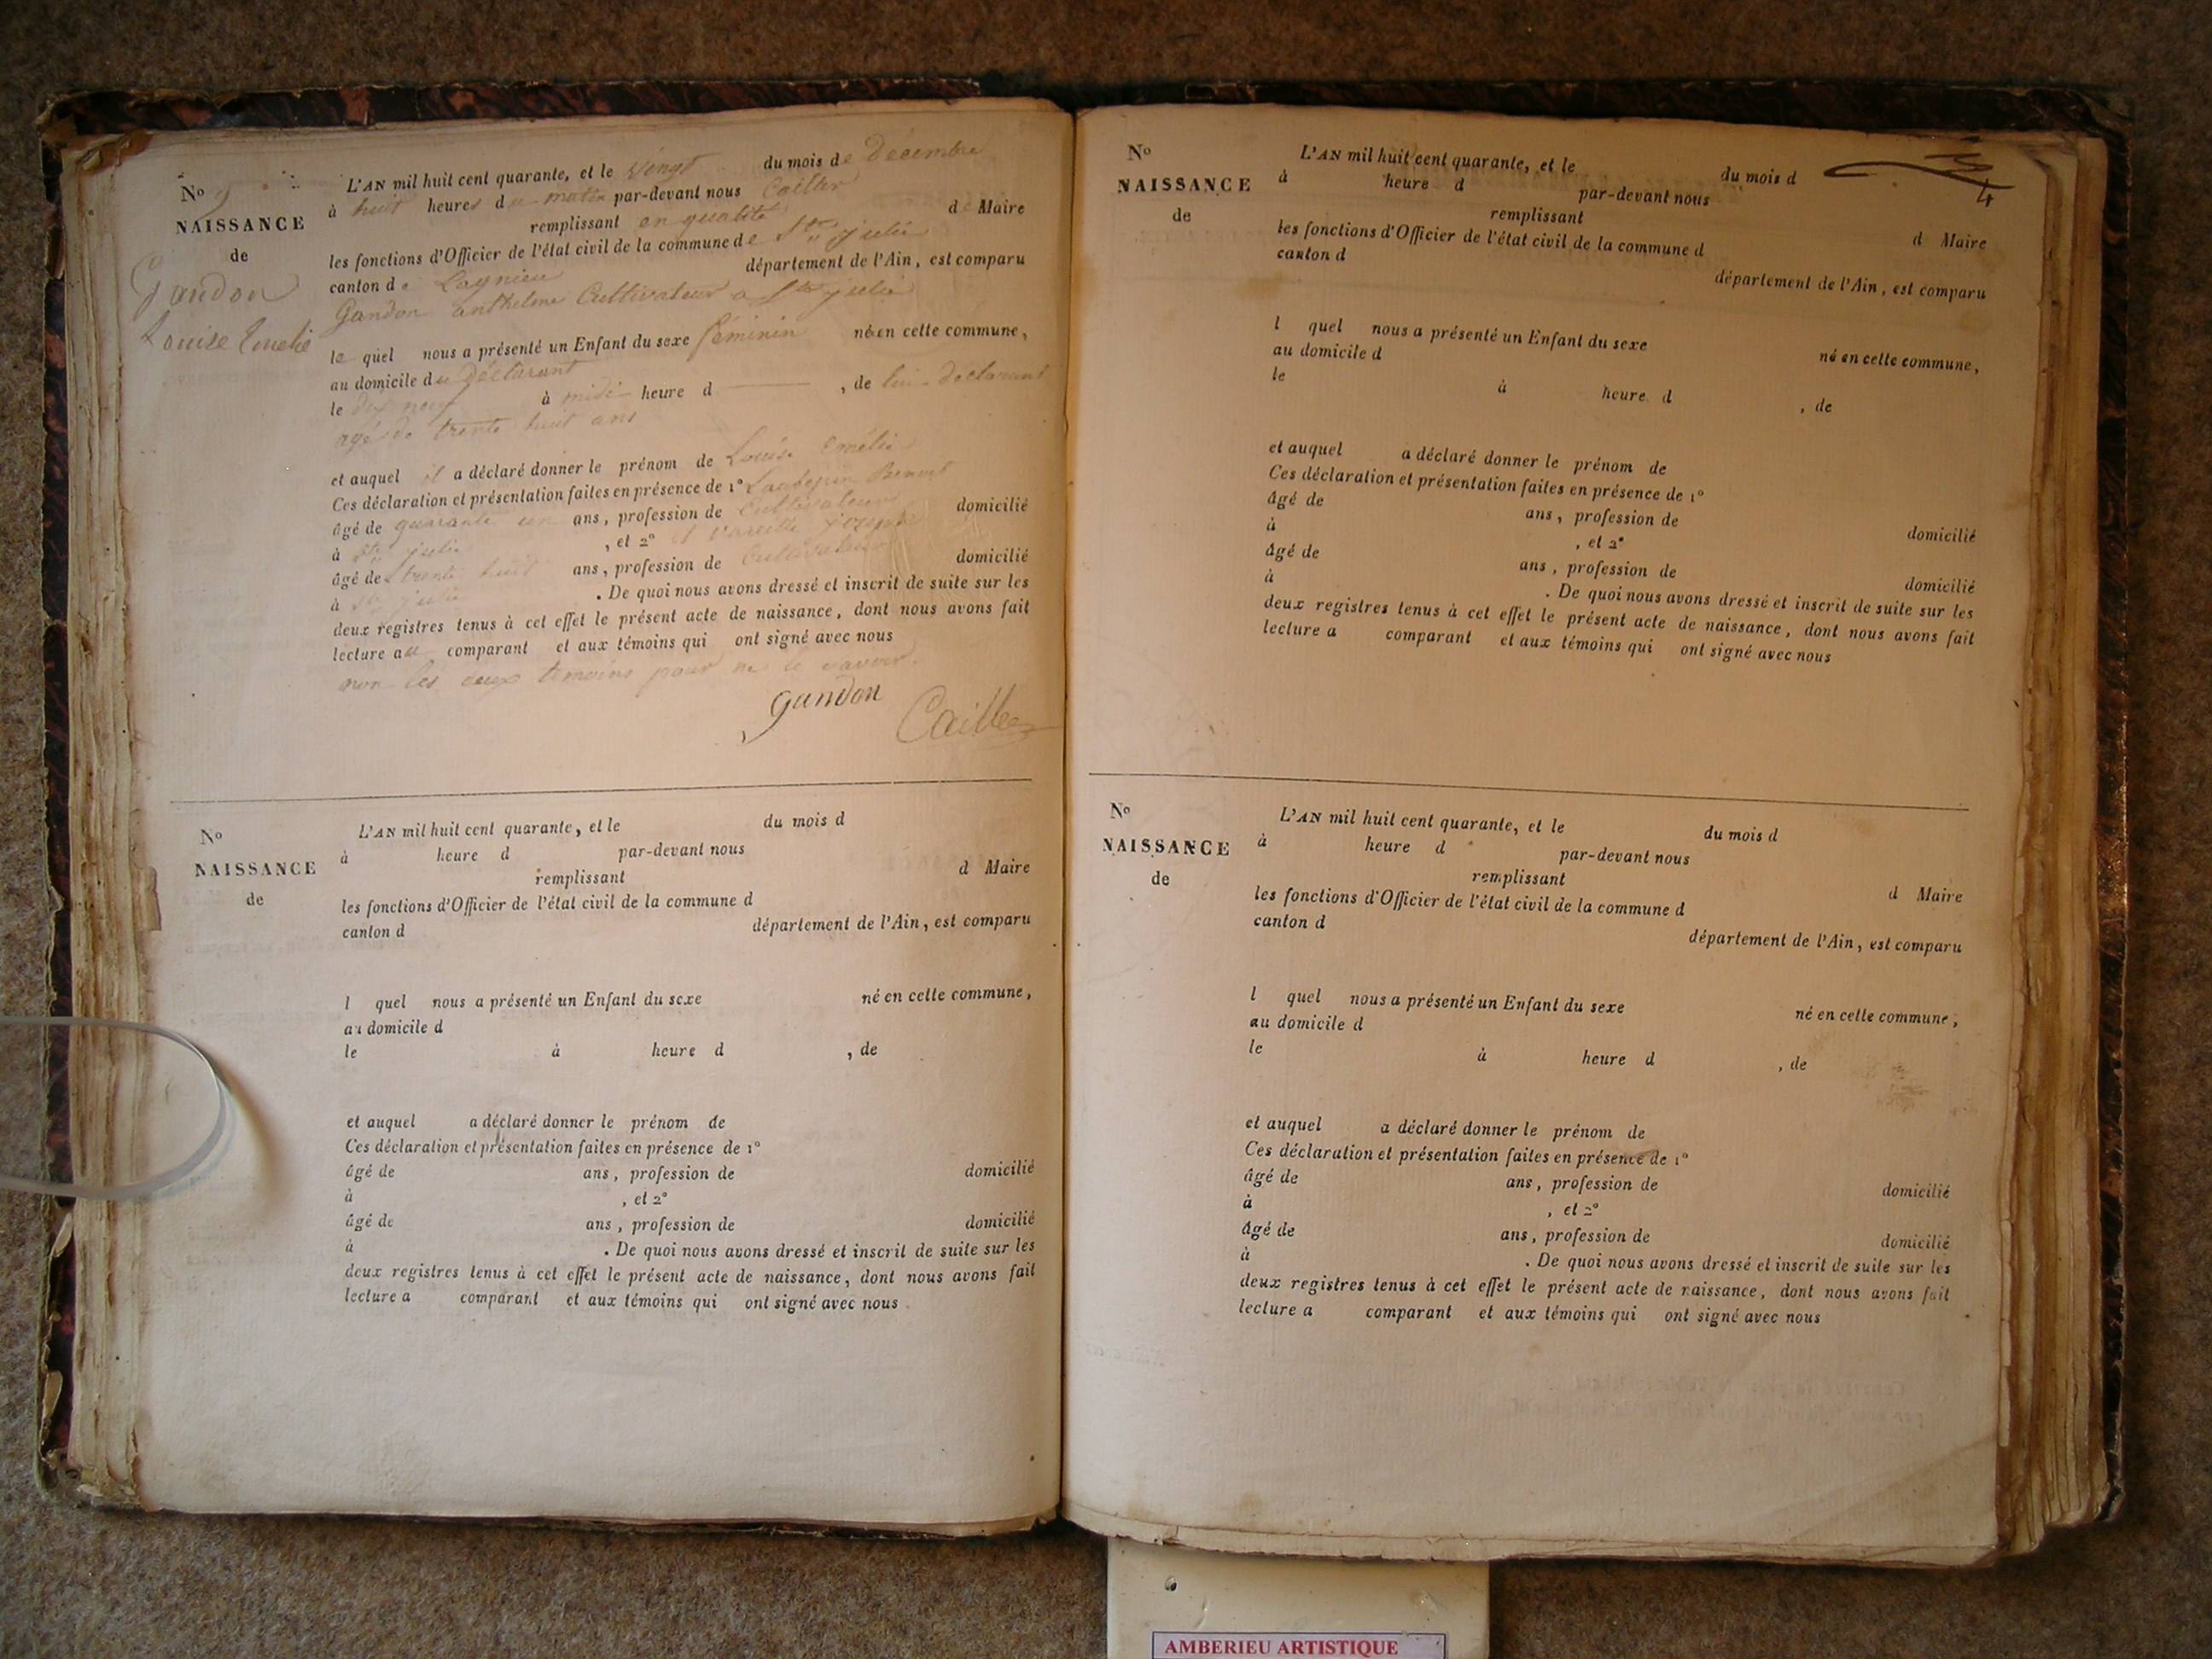 No 9
NAISSANCE
de
Gandon
Louise Emelie
L'AN mil huit cent quarante, et le vingt du mois de Décembre
à huit heures du matin par-devant nous Cailler
remplissant en qualité de Maire
les fonctions d'Officier de l'état civil de la commune de Ste julie
canton de Lagnieu département de l'Ain, est comparu
Gandon anthelme Cultivateur a Ste julie
le quel nous a présenté un Enfant du sexe féminin né en cette commune,
au domicile du déclarant
le dix neuf à midi heure d , de lui declarant
agé de trente huit ans
et auquel il a déclaré donner le prénom de Louise Emélie
Ces déclaration et présentation faites en présence de 1º Benoit
âgé de quarante un ans, profession de Cultivateur domicilié
à Ste julie , et 2º et joseph
âgé de trente huit ans, profession de Cultivateur domicilié
à Ste julie . De quoi nous avons dressé et inscrit de suite sur les
deux registres tenus à cet effet le présent acte de naissance, dont nous avons fait
lecture au comparant et aux témoins qui ont signé avec nous
non les deux temoins pour ne le savoir.
gandon Cailler
No
NAISSANCE
de
L'AN mil huit cent quarante, et le du mois d
à heure d par-devant nous
remplissant d Maire
les fonctions d'Officier de l'état civil de la commune d
canton d département de l'Ain, est comparu
l quel nous a présenté un Enfant du sexe né en cette commune,
au domicile d
le à heure d , de
et auquel a déclaré donner le prénom de
Ces déclaration et présentation faites en présence de 1º
âgé de ans, profession de domicilié
à , et 2º
âgé de ans, profession de domicilié
à . De quoi nous avons dressé et inscrit de suite sur les
deux registres tenus à cet effet le présent acte de naissance, dont nous avons fait
lecture a comparant et aux témoins qui ont signé avec nous
4
No
NAISSANCE
de
L'AN mil huit cent quarante, et le du mois d
à heure d par-devant nous
remplissant d Maire
les fonctions d'Officier de l'état civil de la commune d
canton d département de l'Ain, est comparu
l quel nous a présenté un Enfant du sexe né en cette commune,
au domicile d
le à heure d , de
et auquel a déclaré donner le prénom de
Ces déclaration et présentation faites en présence de 1º
âgé de ans, profession de domicilié
à , et 2º
âgé de ans, profession de domicilié
à . De quoi nous avons dressé et inscrit de suite sur les
deux registres tenus à cet effet le présent acte de naissance, dont nous avons fait
lecture a comparant et aux témoins qui ont signé avec nous
No
NAISSANCE
de
L'AN mil huit cent quarante, et le du mois d
à heure d par-devant nous
remplissant d Maire
les fonctions d'Officier de l'état civil de la commune d
canton d département de l'Ain, est comparu
l quel nous a présenté un Enfant du sexe né en cette commune,
au domicile d
le à heure d , de
et auquel a déclaré donner le prénom de
Ces déclaration et présentation faites en présence de 1º
âgé de ans, profession de domicilié
à , et 2º
âgé de ans, profession de domicilié
à . De quoi nous avons dressé et inscrit de suite sur les
deux registres tenus à cet effet le présent acte de naissance, dont nous avons fait
lecture a comparant et aux témoins qui ont signé avec nous
AMBERIEU ARTISTIQUE